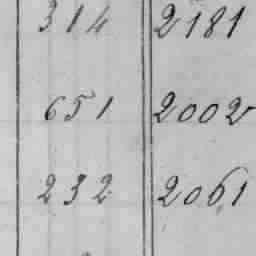 314 2181
651 2002
232 2061